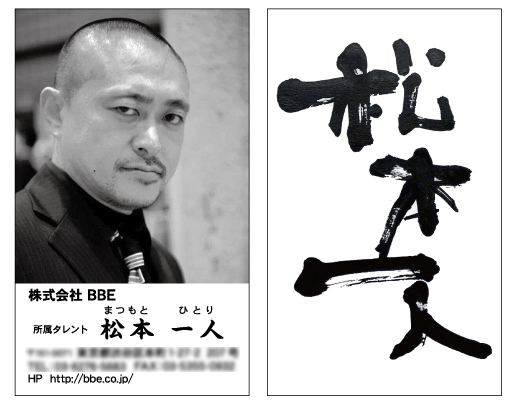 株式会社 BBE
まつもと ひとり
所属タレント 松本 一人
HP http://bbe.co.jp/
松本一人